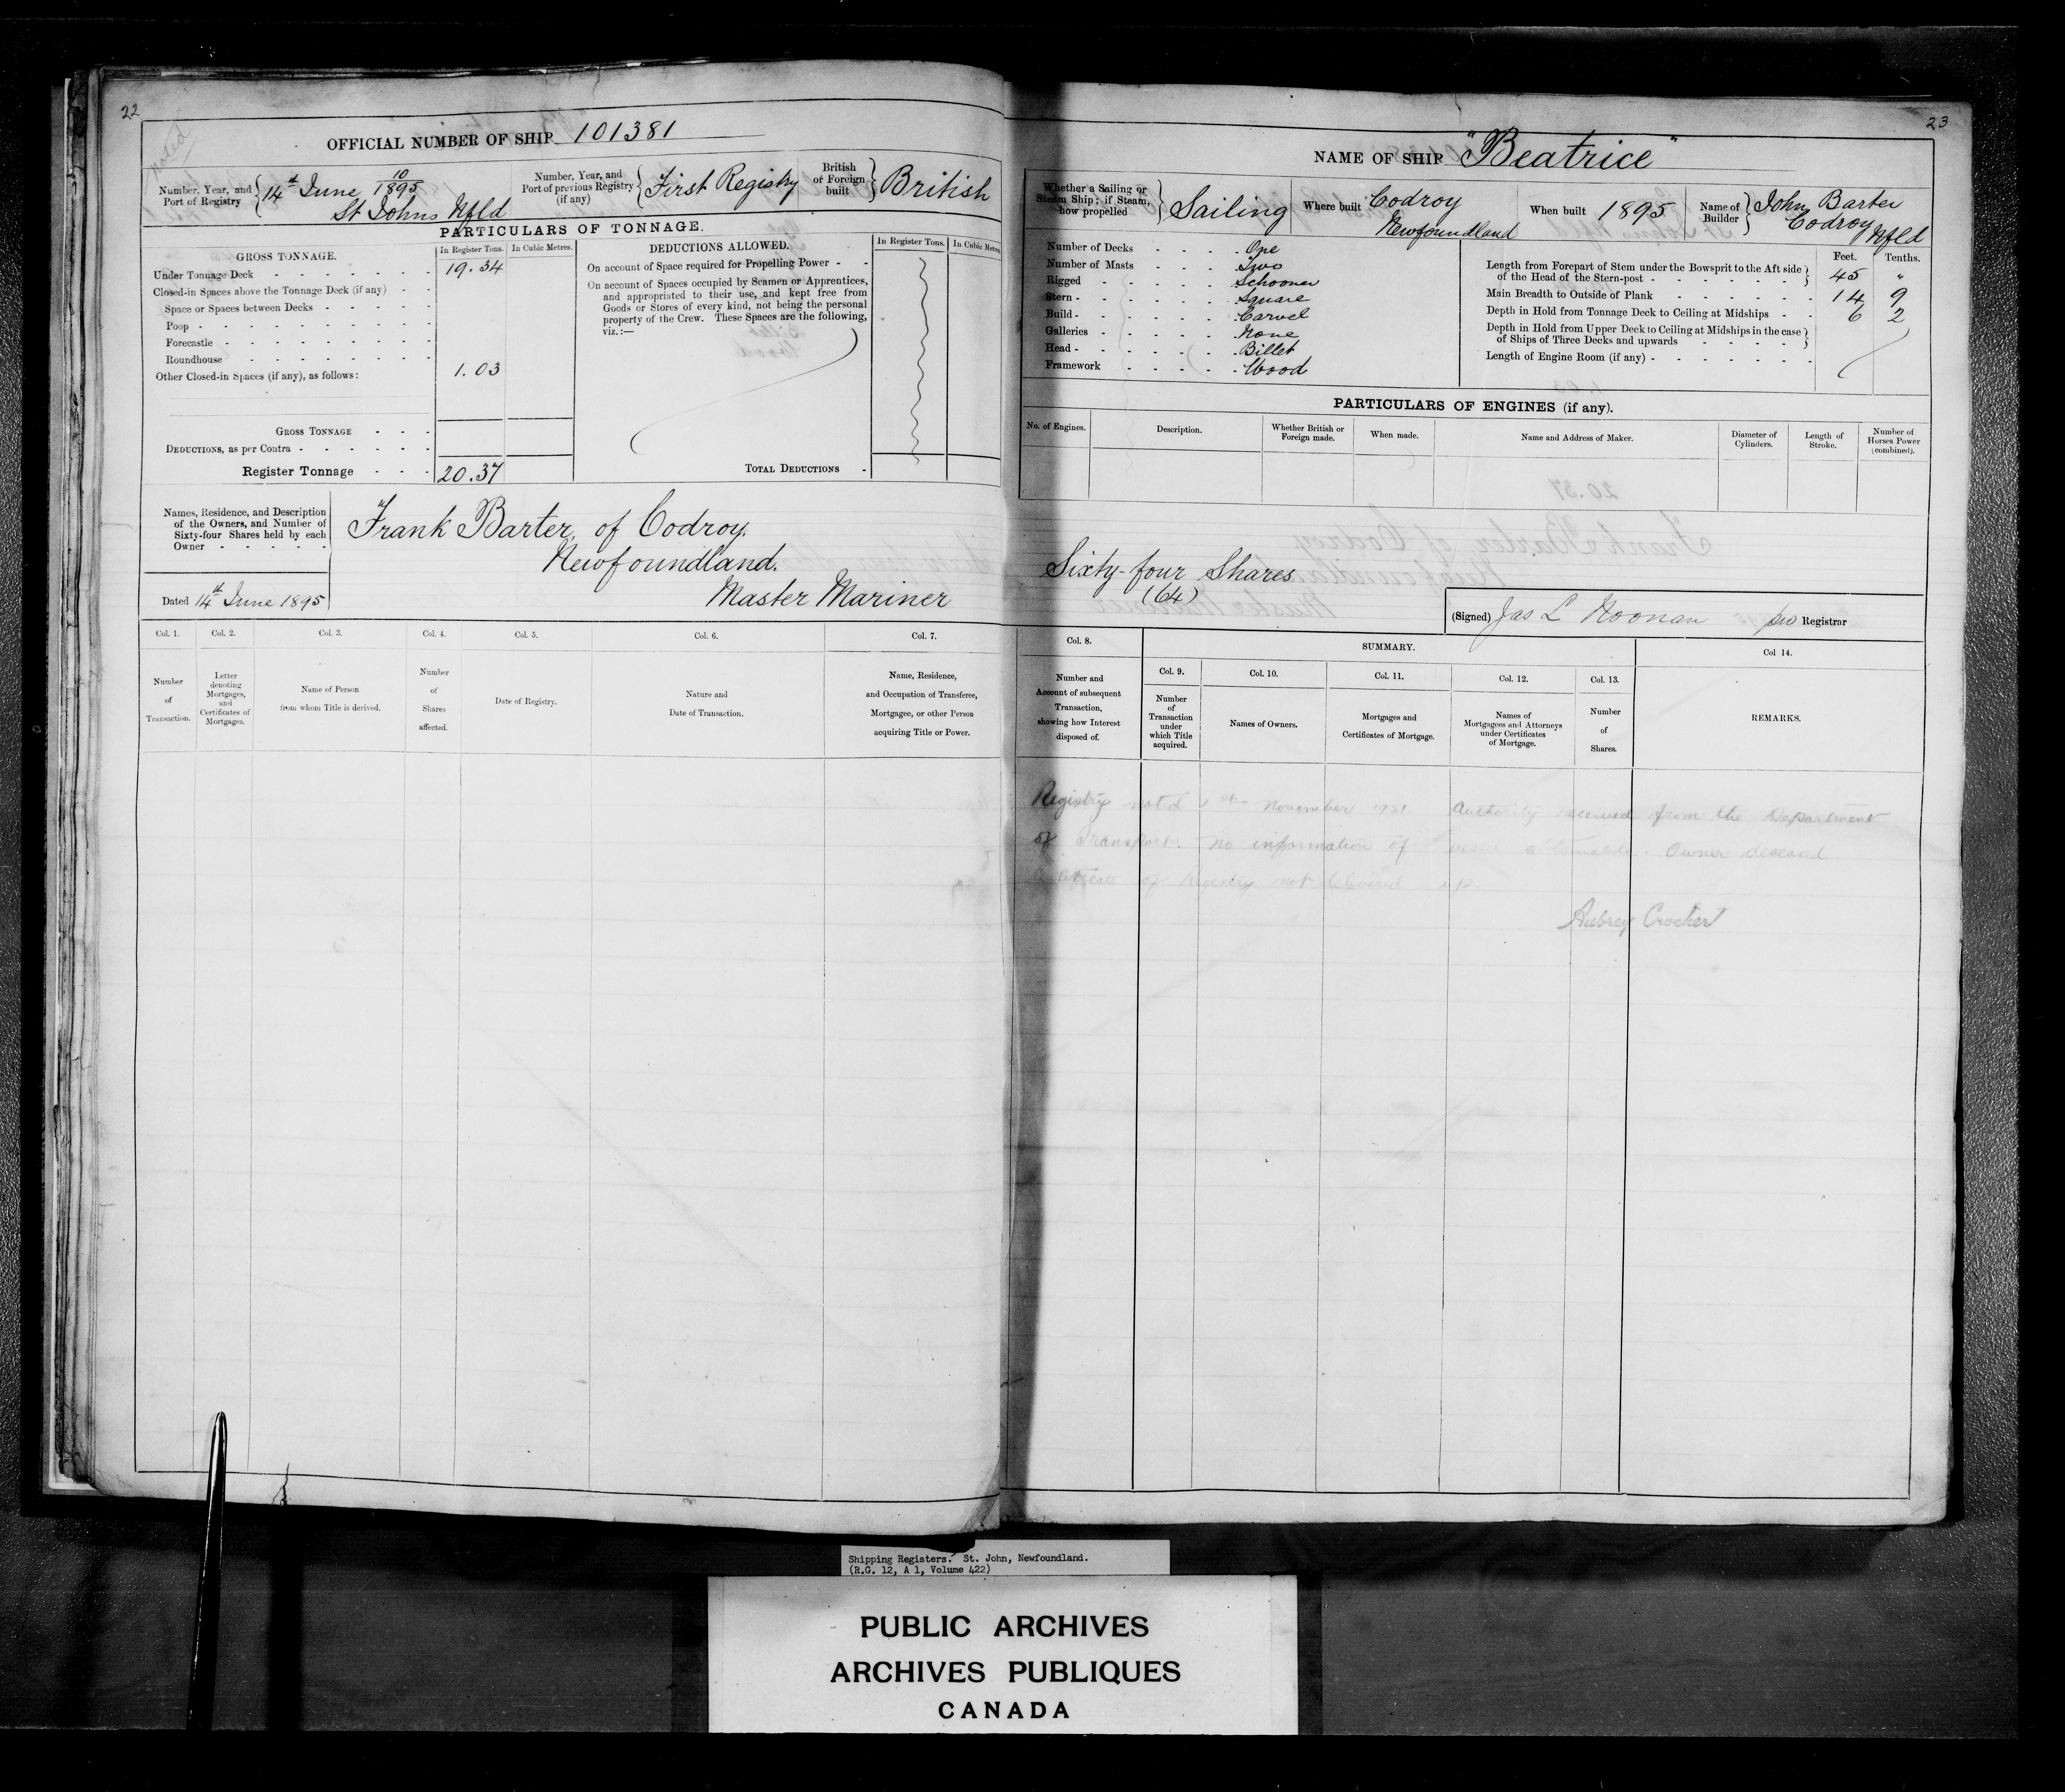 22
OFFICIAL NUMBER OF SHIP 101381
Number, Year, and Port of Registry { 14th June 10/1895 St Johns Nfld
Number, Year, and Port of previous Registry (if any) { First Registry
British of Foreign built } British
PARTICULARS OF TONNAGE.
GROSS TONNAGE. In Register Tons. In Cubic Metres.
Under Tonnage Deck 19.34
Closed-in Spaces above the Tonnage Deck (if any)
Space or Spaces between Decks
Poop
Forecastle
Roundhouse
Other Closed-in Spaces (if any), as follows: 1.03
GROSS TONNAGE
DEDUCTIONS, as per Contra
Register Tonnage 20.37
DEDUCTIONS ALLOWED. In Register Tons. In Cubic Metres
On account of Space required for Propelling Power
On account of Spaces occupied by Seamen or Apprentices,
and appropriated to their use, and kept free from
Goods or Stores of every kind, not being the personal
property of the Crew. These Spaces are the following,
viz.:—
TOTAL DEDUCTIONS
Names, Residence, and Description
of the Owners, and Number of
Sixty-four Shares held by each
Owner
Frank Barter, of Codroy.
Newfoundland.
Master Mariner
Dated 14th June 1895
Col. 1. Col. 2. Col. 3. Col. 4. Col. 5. Col. 6. Col. 7.
Number of Transaction.
Letter denoting Mortgages, and Certificates of Mortgages.
Name of Person from whom Title is derived.
Number of Shares affected.
Date of Registry.
Nature and Date of Transaction.
Name, Residence, and Occupation of Transferee, Mortgagee, or other Person acquiring Title or Power.
23
NAME OF SHIP "Beatrice"
Whether a Sailing or Steam Ship; if Steam, how propelled } Sailing
Where built Codroy Newfoundland
When built 1895
Name of Builder } John Barter Codroy Nfld
Number of Decks One
Number of Masts Two
Rigged Schooner
Stern Square
Build Carvel
Galleries None
Head Billet
Framework Wood
Feet. Tenths.
Length from Forepart of Stem under the Bowsprit to the Aft side of the Head of the Stern-post } 45 "
Main Breadth to Outside of Plank 14 9
Depth in Hold from Tonnage Deck to Ceiling at Midships 6 2
Depth in Hold from Upper Deck to Ceiling at Midships in the case of Ships of Three Decks and upwards }
Length of Engine Room (if any)
PARTICULARS OF ENGINES (if any).
No. of Engines. Description. Whether British or Foreign made. When made. Name and Address of Maker. Diameter of Cylinders. Length of Stroke. Number of Horses Power (combined).
Sixty-four Shares
(64)
(Signed) Jas L Noonan Registrar
Col. 8. SUMMARY. Col 14.
Col. 9. Col. 10. Col. 11. Col. 12. Col. 13.
Number and Account of subsequent Transaction, showing how Interest disposed of.
Number of Transaction under which Title acquired.
Names of Owners.
Mortgages and Certificates of Mortgage.
Names of Mortgagees and Attorneys under Certificates of Mortgage.
Number of Shares.
REMARKS.
Registry noted 1st November 1951. Authority received from the Department
of Transport. No information of vessel obtainable. Owner deceased.
Certificate of Registry not delivered up.
Aubrey Crocker
Shipping Registers. St. John, Newfoundland.
(R.G. 12, A 1, Volume 422)
PUBLIC ARCHIVES
ARCHIVES PUBLIQUES
CANADA